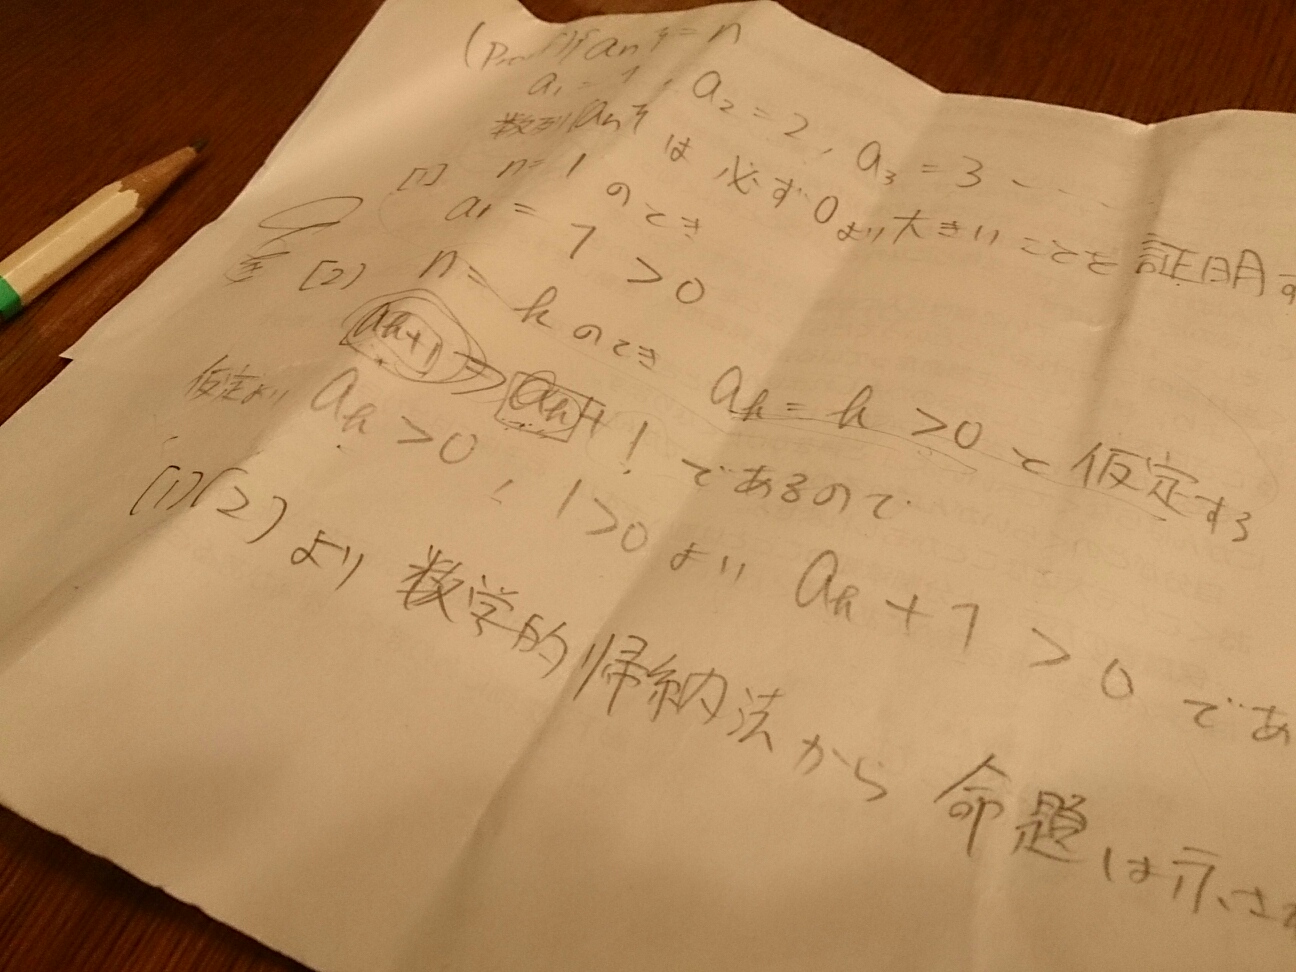 {an} = n
a₁ = 1, a₂ = 2, a₃ = 3 ……
数列{an} は 必ず 0より大きいことを 証明す
[1] n=1 のとき
a₁ = 1 > 0
[2] n = k のとき ak = k > 0 と 仮定する
ak+1 = ak + 1 であるので
仮定より ak > 0, 1 > 0 より ak + 1 > 0 であ
[1][2] より 数学的帰納法から 命題は示され